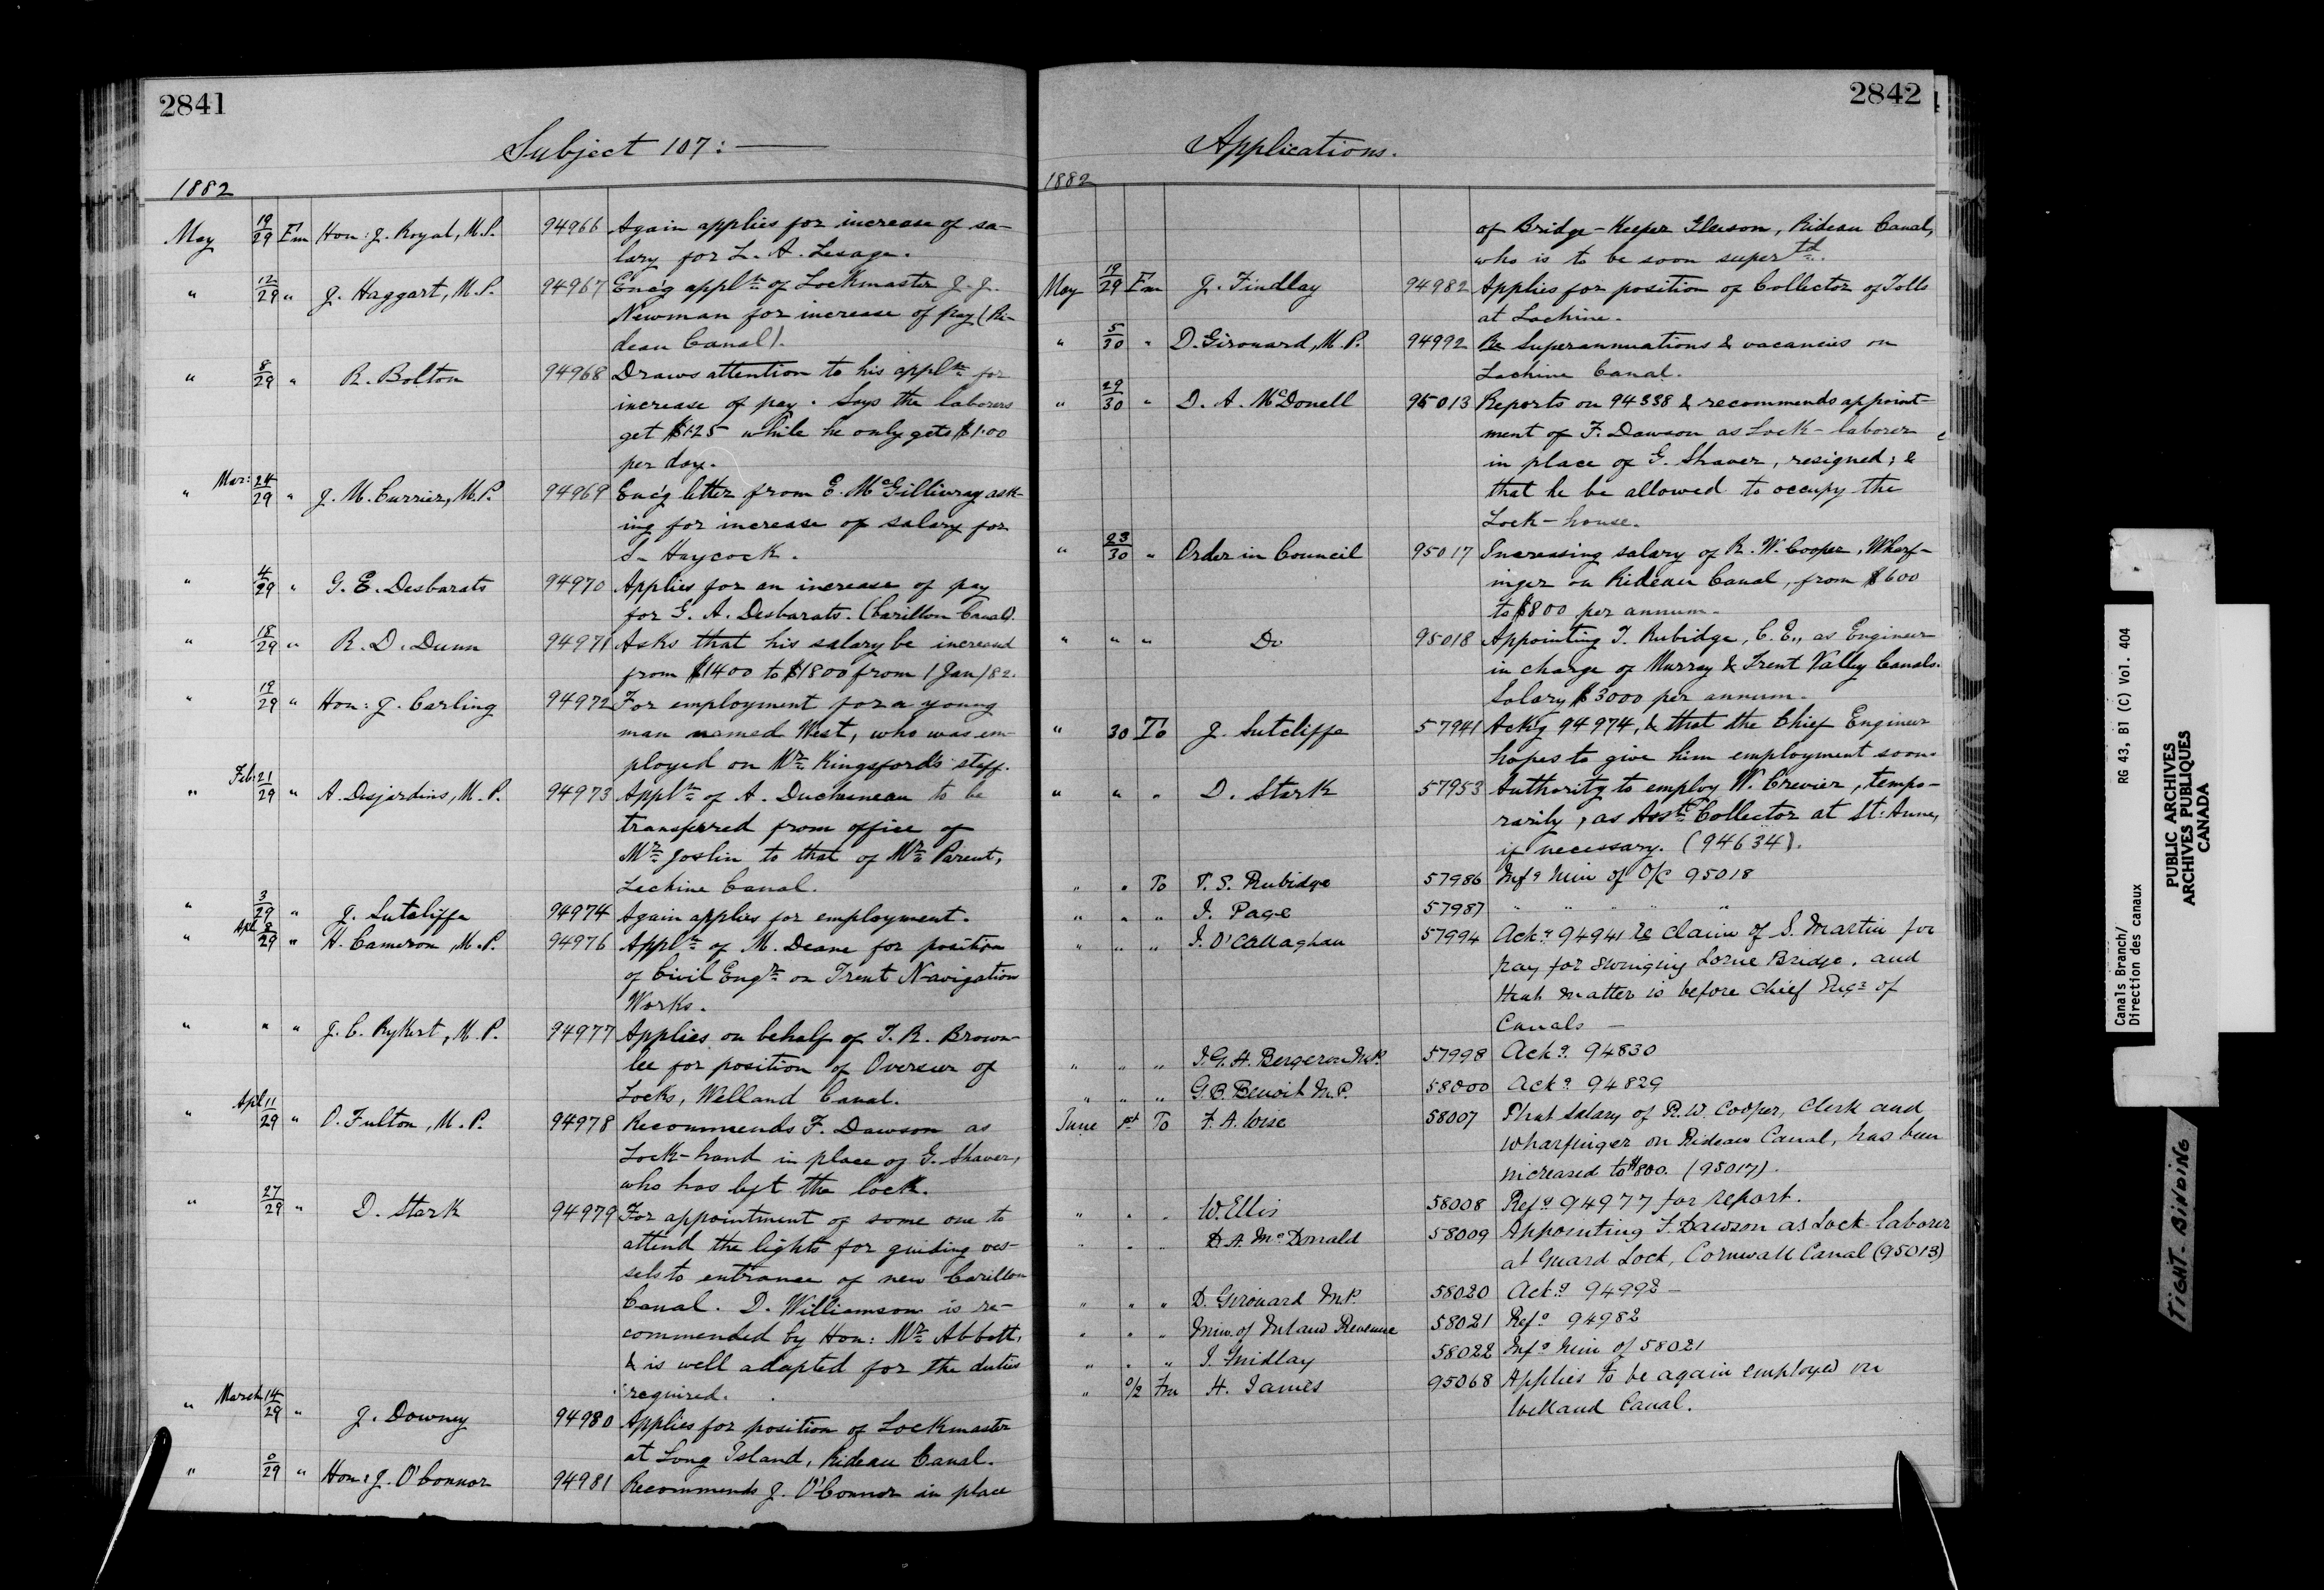 2841
Subject 107:
1882
May 19/29 Fm Hon: J. Royal, M.P. 94966 Again applies for increase of sa-
lary for L. A. Lesage.
" 12/29 " J. Haggart, M.P. 94967 Enc'g appltn of Lockmaster J. J.
Newman for increase of pay (Ri-
deau Canal).
" 8/29 " R. Bolton 94968 Draws attention to his appltn for
increase of pay. Says the laborers
get $1.25 while he only gets $1.00
per day.
" Mar: 24/29 " J. M. Currier, M.P. 94969 Enc'g letter from E. McGillivray ask-
ing for increase of salary for
S. Haycock.
" 4/29 " G. E. Desbarats 94970 Applies for an increase of pay
for G. A. Desbarats. (Carillon Canal).
" 18/29 " R. D. Dunn 94971 Asks that his salary be increased
from $1400 to $1800 from 1 Jan/82.
" 19/29 " Hon: J. Carling 94972 For employment for a young
man named West, who was em-
ployed on Mr. Kingsford's staff.
" Feb: 21/29 " A. Desjardins, M.P. 94973 Appltn of A. Duchesneau to be
transferred from office of
Mr. Joslin to that of Mr. Parent,
Lachine Canal.
" 3/29 " J. Sutcliffe 94974 Again applies for employment.
" Apl 8/29 " H. Cameron, M.P. 94976 Appltn of M. Deane for position
of Civil Engr. on Trent Navigation
Works.
" " " J. C. Rykert, M.P. 94977 Applies on behalf of J. R. Brown-
lee for position of Overseer of
Locks, Welland Canal.
" Apl 11/29 " O. Fulton, M.P. 94978 Recommends F. Dawson as
Lock-hand in place of G. Shaver,
who has left the lock.
" 27/29 " D. Stark 94979 For appointment of some one to
attend the lights for guiding ves-
sels to entrance of new Carillon
Canal. D. Williamson is re-
commended by Hon: Mr. Abbott,
& is well adapted for the duties
required.
" March 14/29 " J. Downey 94980 Applies for position of Lockmaster
at Long Island, Rideau Canal.
" 0/29 " Hon: J. O'Connor 94981 Recommends J. O'Connor in place
2842
Applications.
1882
of Bridge-Keeper Gleeson, Rideau Canal,
who is to be soon supertd.
May 19/29 Fm J. Findlay 94982 Applies for position of Collector of Tolls
at Lachine.
" 5/30 " D. Girouard, M.P. 94992 Re Superannuations & vacancies on
Lachine Canal.
" 29/30 " D. A. McDonell 95013 Reports on 94338 & recommends appoint-
ment of F. Dawson as Lock-laborer
in place of G. Shaver, resigned; &
that he be allowed to occupy the
Lock-house.
" 23/30 " Order in Council 95017 Increasing salary of R. W. Cooper, Wharf-
inger on Rideau Canal, from $600
to $800 per annum.
" " " Do 95018 Appointing T. Rubidge, C.E., as Engineer
in charge of Murray & Trent Valley Canals.
Salary $3000 per annum.
" 30 To J. Sutcliffe 57941 Ack'g 94974, & that the Chief Engineer
hopes to give him employment soon.
" " " D. Stark 57953 Authority to employ W. Crevier, tempo-
rarily, as Asst. Collector at St. Anne,
if necessary. (94634).
" " To T. S. Rubidge 57986 Infg him of O/C 95018
" " " J. Page 57987 " " " " "
" " " J. O'Callaghan 57994 Ackg 94941 re claim of S. Martin for
pay for swinging Lorne Bridge. and
that matter is before Chief Engr of
Canals —
" " " J. G. H. Bergeron M.P. 57998 Ackg 94830
" " " G. B. Benoit M.P. 58000 Ackg 94829
June 1st To F. A. Wise 58007 That Salary of R. W. Cooper, Clerk and
Wharfinger on Rideau Canal, has been
increased to $800. (95017).
" " " W. Ellis 58008 Refg 94977 for report.
" " " D. A. McDonald 58009 Appointing F. Dawson as Lock-laborer
at Guard Lock, Cornwall Canal (95013)
" " " D. Girouard M.P. 58020 Ackg 94992 —
" " " Min. of Inland Revenue 58021 Refg 94982
" " " J. Findlay 58022 Infg him of 58021
" 0/2 Fm H. James 95068 Applies to be again employed on
Welland Canal.
Canals Branch/
Direction des canaux
RG 43, B1 (C) Vol. 404
PUBLIC ARCHIVES
ARCHIVES PUBLIQUES
CANADA
TIGHT BINDING